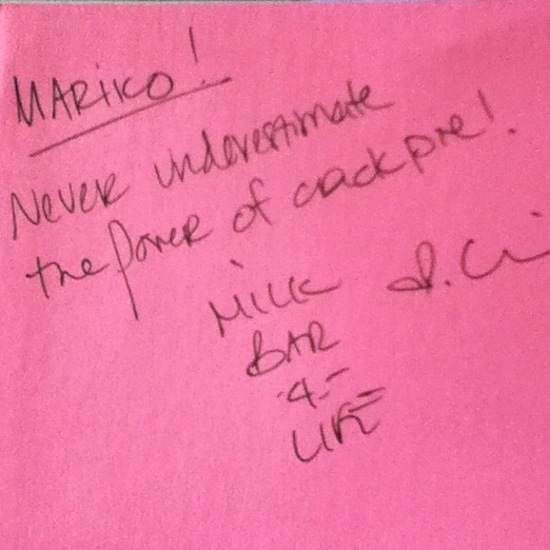 MARIKO!
Never underestimate
the power of crack pie!
MILK
BAR
4-
LIFE